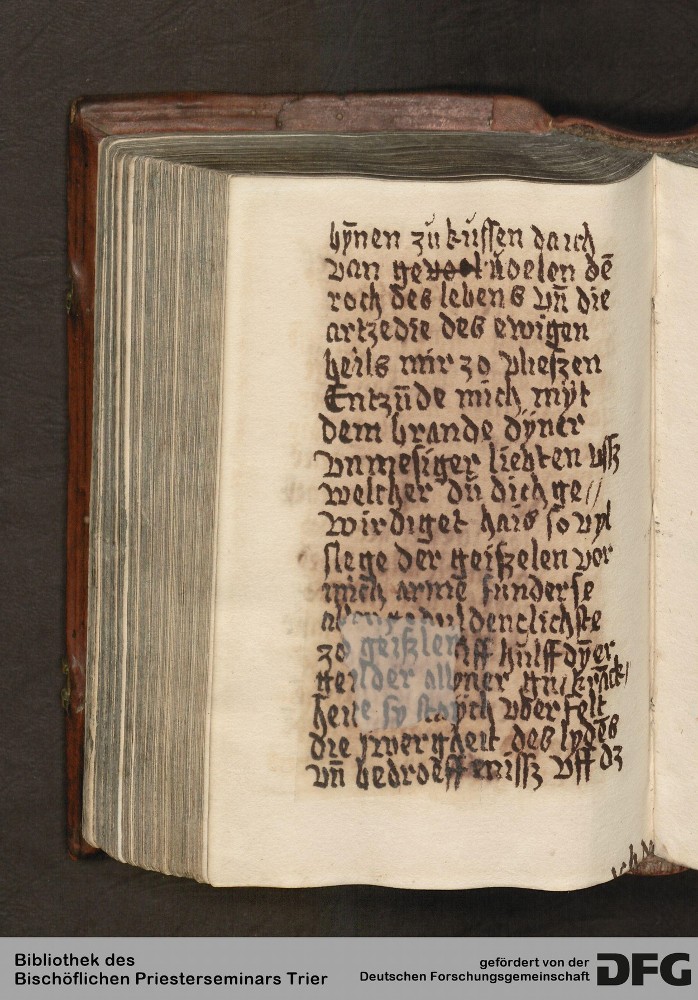 hȳnen zů kůssen da ich
van ge ůoelen dē
roch des lebens vñ die
artzedie des ewigen
heils mir zo vlieſzen
Entzūde mich myt
dem brande dyner
vnmesiger liebten vſſz
welcher dů dich ge//
wirdiget hais so vyl
slege der geiſzelen vor
mich armē sunderse
zo geiſzlen hůlff dȳer
der
heit
die des lydēs
vñ bedroeffeniſſz vff dz
Bibliothek des
Bischöflichen Priesterseminars Trier
gefördert von der
Deutschen Forschungsgemeinschaft
DFG